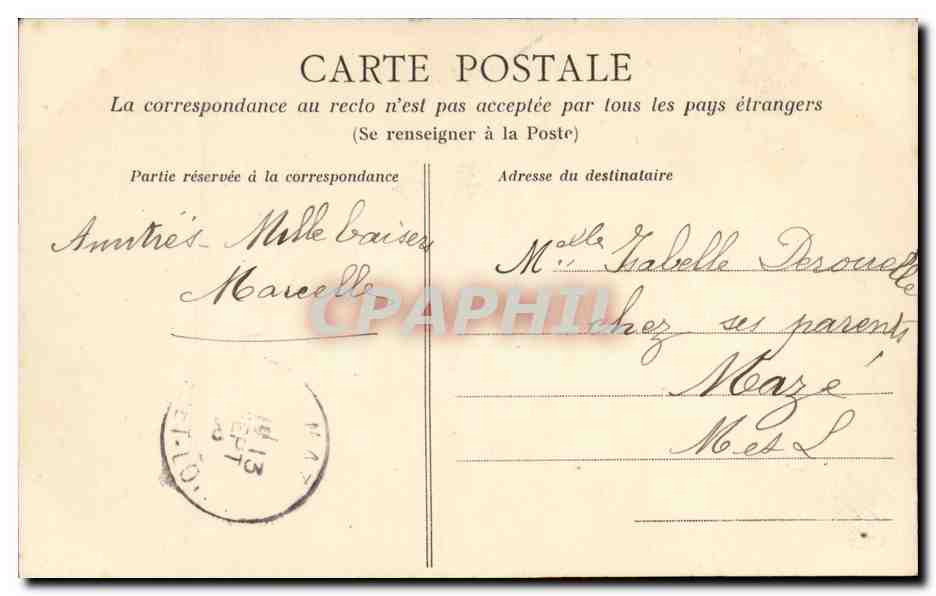 CARTE POSTALE
La correspondance au recto n'est pas acceptée par tous les pays étrangers
(Se renseigner à la Poste)
Partie réservée à la correspondance
Amitiés Mille baisers
Marcelle
Adresse du destinataire
Melle Isabelle Derouelle
chez ses parents
Mazé
M et L
CPAPHIL
MAZ
13
SEPT
ET-LOI